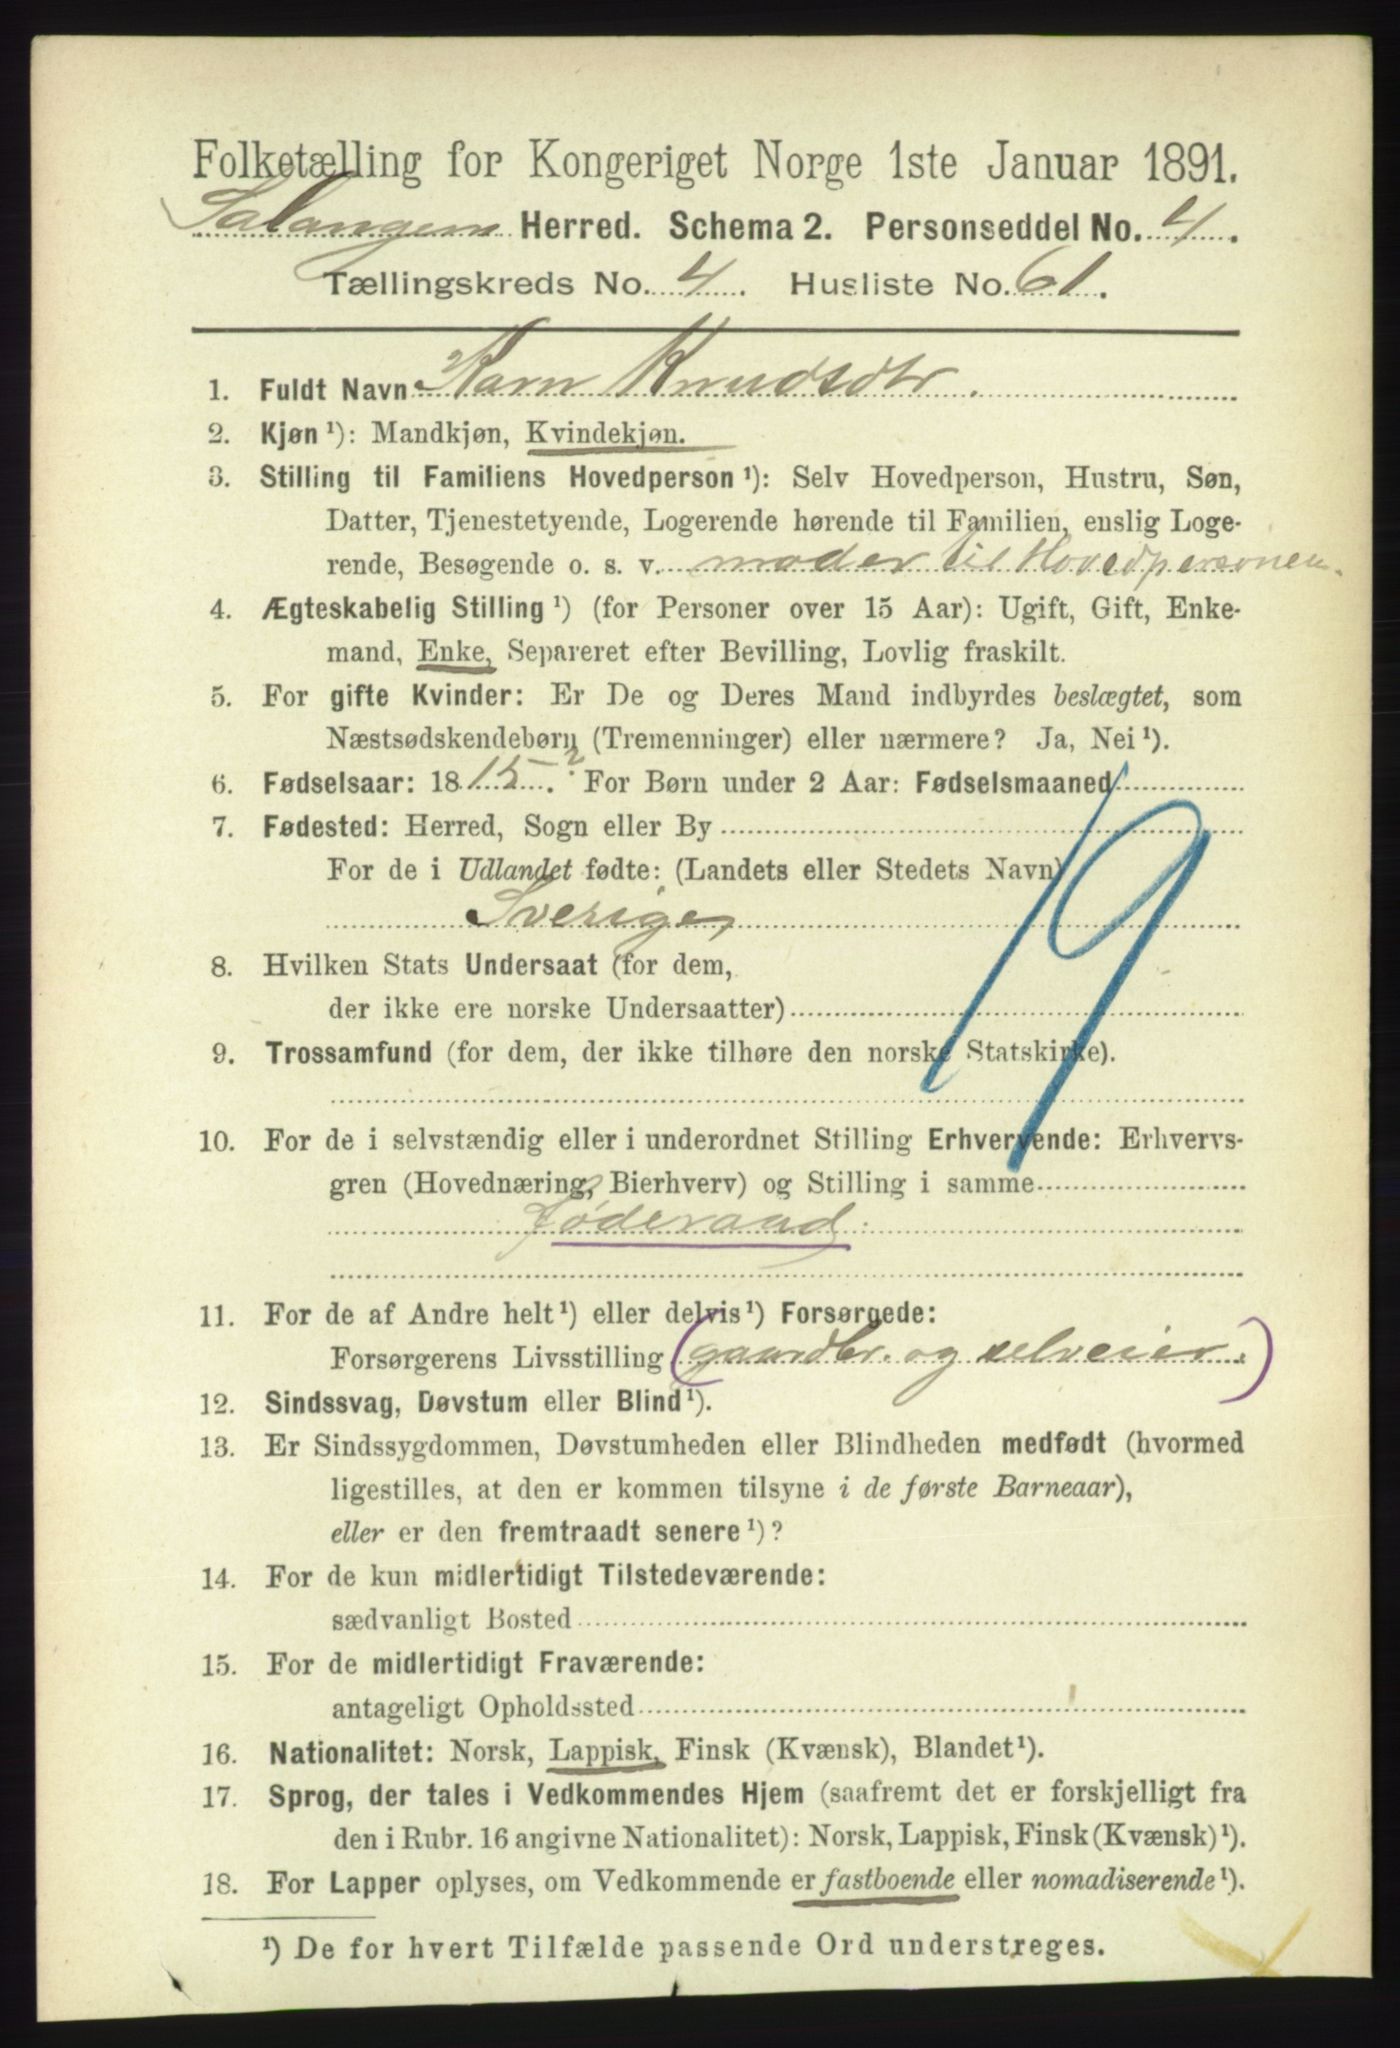 Folketælling for Kongeriget Norge 1ste Januar 1891.
Salangen Herred. Schema 2. Personseddel No. 4.
Tællingskreds No. 4. Husliste No. 61.
1. Fuldt Navn Karn Knudsdtr.
2. Kjøn ¹): Mandkjøn, Kvindekjøn.
3. Stilling til Familiens Hovedperson ¹): Selv Hovedperson, Hustru, Søn,
Datter, Tjenestetyende, Logerende hørende til Familien, enslig Loge-
rende, Besøgende o. s. v. moder til Hovedpersonen.
4. Ægteskabelig Stilling ¹) (for Personer over 15 Aar): Ugift, Gift, Enke-
mand, Enke, Separeret efter Bevilling, Lovlig fraskilt.
5. For gifte Kvinder: Er De og Deres Mand indbyrdes beslægtet, som
Næstsødskendebørn (Tremenninger) eller nærmere? Ja, Nei ¹).
6. Fødselsaar: 1815.? For Børn under 2 Aar: Fødselsmaaned
7. Fødested: Herred, Sogn eller By
For de i Udlandet fødte: (Landets eller Stedets Navn)
Sverige,
19
8. Hvilken Stats Undersaat (for dem,
der ikke ere norske Undersaatter)
9. Trossamfund (for dem, der ikke tilhøre den norske Statskirke).
10. For de i selvstændig eller i underordnet Stilling Erhvervende: Erhvervs-
gren (Hovednæring, Bierhverv) og Stilling i samme
Føderaad.
11. For de af Andre helt ¹) eller delvis ¹) Forsørgede:
Forsørgerens Livsstilling (gaardbr. og selveier.)
12. Sindssvag, Døvstum eller Blind ¹).
13. Er Sindssygdommen, Døvstumheden eller Blindheden medfødt (hvormed
ligestilles, at den er kommen tilsyne i de første Barneaar),
eller er den fremtraadt senere ¹)?
14. For de kun midlertidigt Tilstedeværende:
sædvanligt Bosted
15. For de midlertidigt Fraværende:
antageligt Opholdssted
16. Nationalitet: Norsk, Lappisk, Finsk (Kvænsk), Blandet ¹).
17. Sprog, der tales i Vedkommendes Hjem (saafremt det er forskjelligt fra
den i Rubr. 16 angivne Nationalitet): Norsk, Lappisk, Finsk (Kvænsk) ¹).
18. For Lapper oplyses, om Vedkommende er fastboende eller nomadiserende ¹).
¹) De for hvert Tilfælde passende Ord understreges.